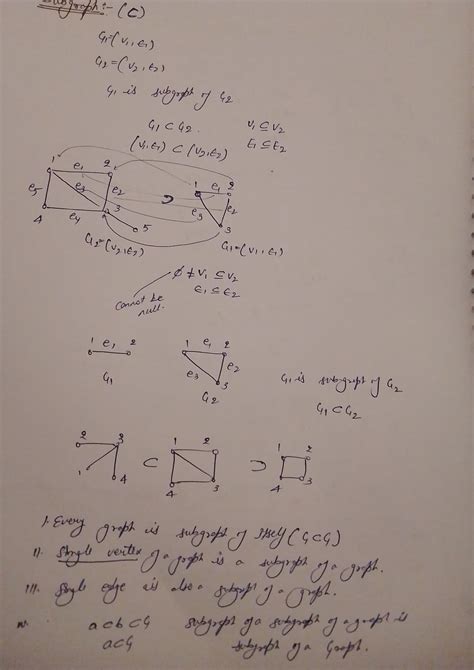 Subgraph:- (C)
G1=(V1, E1)
G2=(V2, E2)
G1 is subgraph of G2
G1 ⊂ G2. V1 ⊆ V2
(V1, E1) ⊂ (V2, E2) E1 ⊆ E2
1 e1 2 1 e1 2
e5 e3 e2 ⊃ e3 e2
4 e4 3 5 3
G2=(V2, E2) G1=(V1, E1)
ϕ ≠ V1 ⊆ V2
E1 ⊆ E2
cannot be
null.
1 e1 2 1 e1 2
e3 e2
3
G1 G2
G1 is subgraph of G2
G1 ⊂ G2
2 3 1 2 1 2
⊂ ⊃
1 4 4 3 4 3
I. Every graph is subgraph of itself (G⊂G)
II. Single vertex of a graph is a subgraph of a graph.
III. Single edge is also a subgraph of a graph.
IV. a⊂b⊂G subgraph of a subgraph of a graph is
a⊂G subgraph of a Graph.